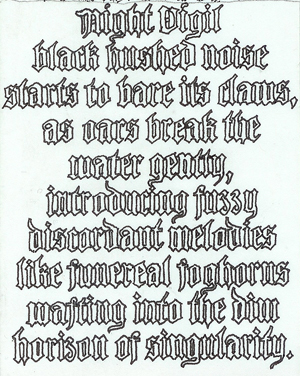 Night Vigil
black hushed noise
starts to bare its claws,
as oars break the
water gently,
introducing fuzzy
discordant melodies
like funereal foghorns
wafting into the dim
horizon of singularity.